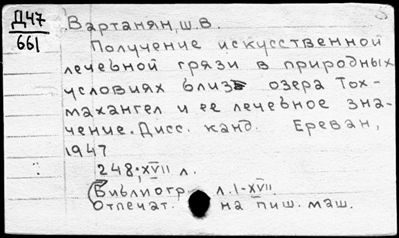 Д47
661
Вартанян, Ш.В.
Получение искусственной
лечебной грязи в природных
условиях близ озера Тох-
махангел и ее лечебное зна-
чение. Дисс. канд. Ереван,
1947
248; XVII л.
(Библиогр. л. I-XVII.
Отпечат. на пиш. маш.